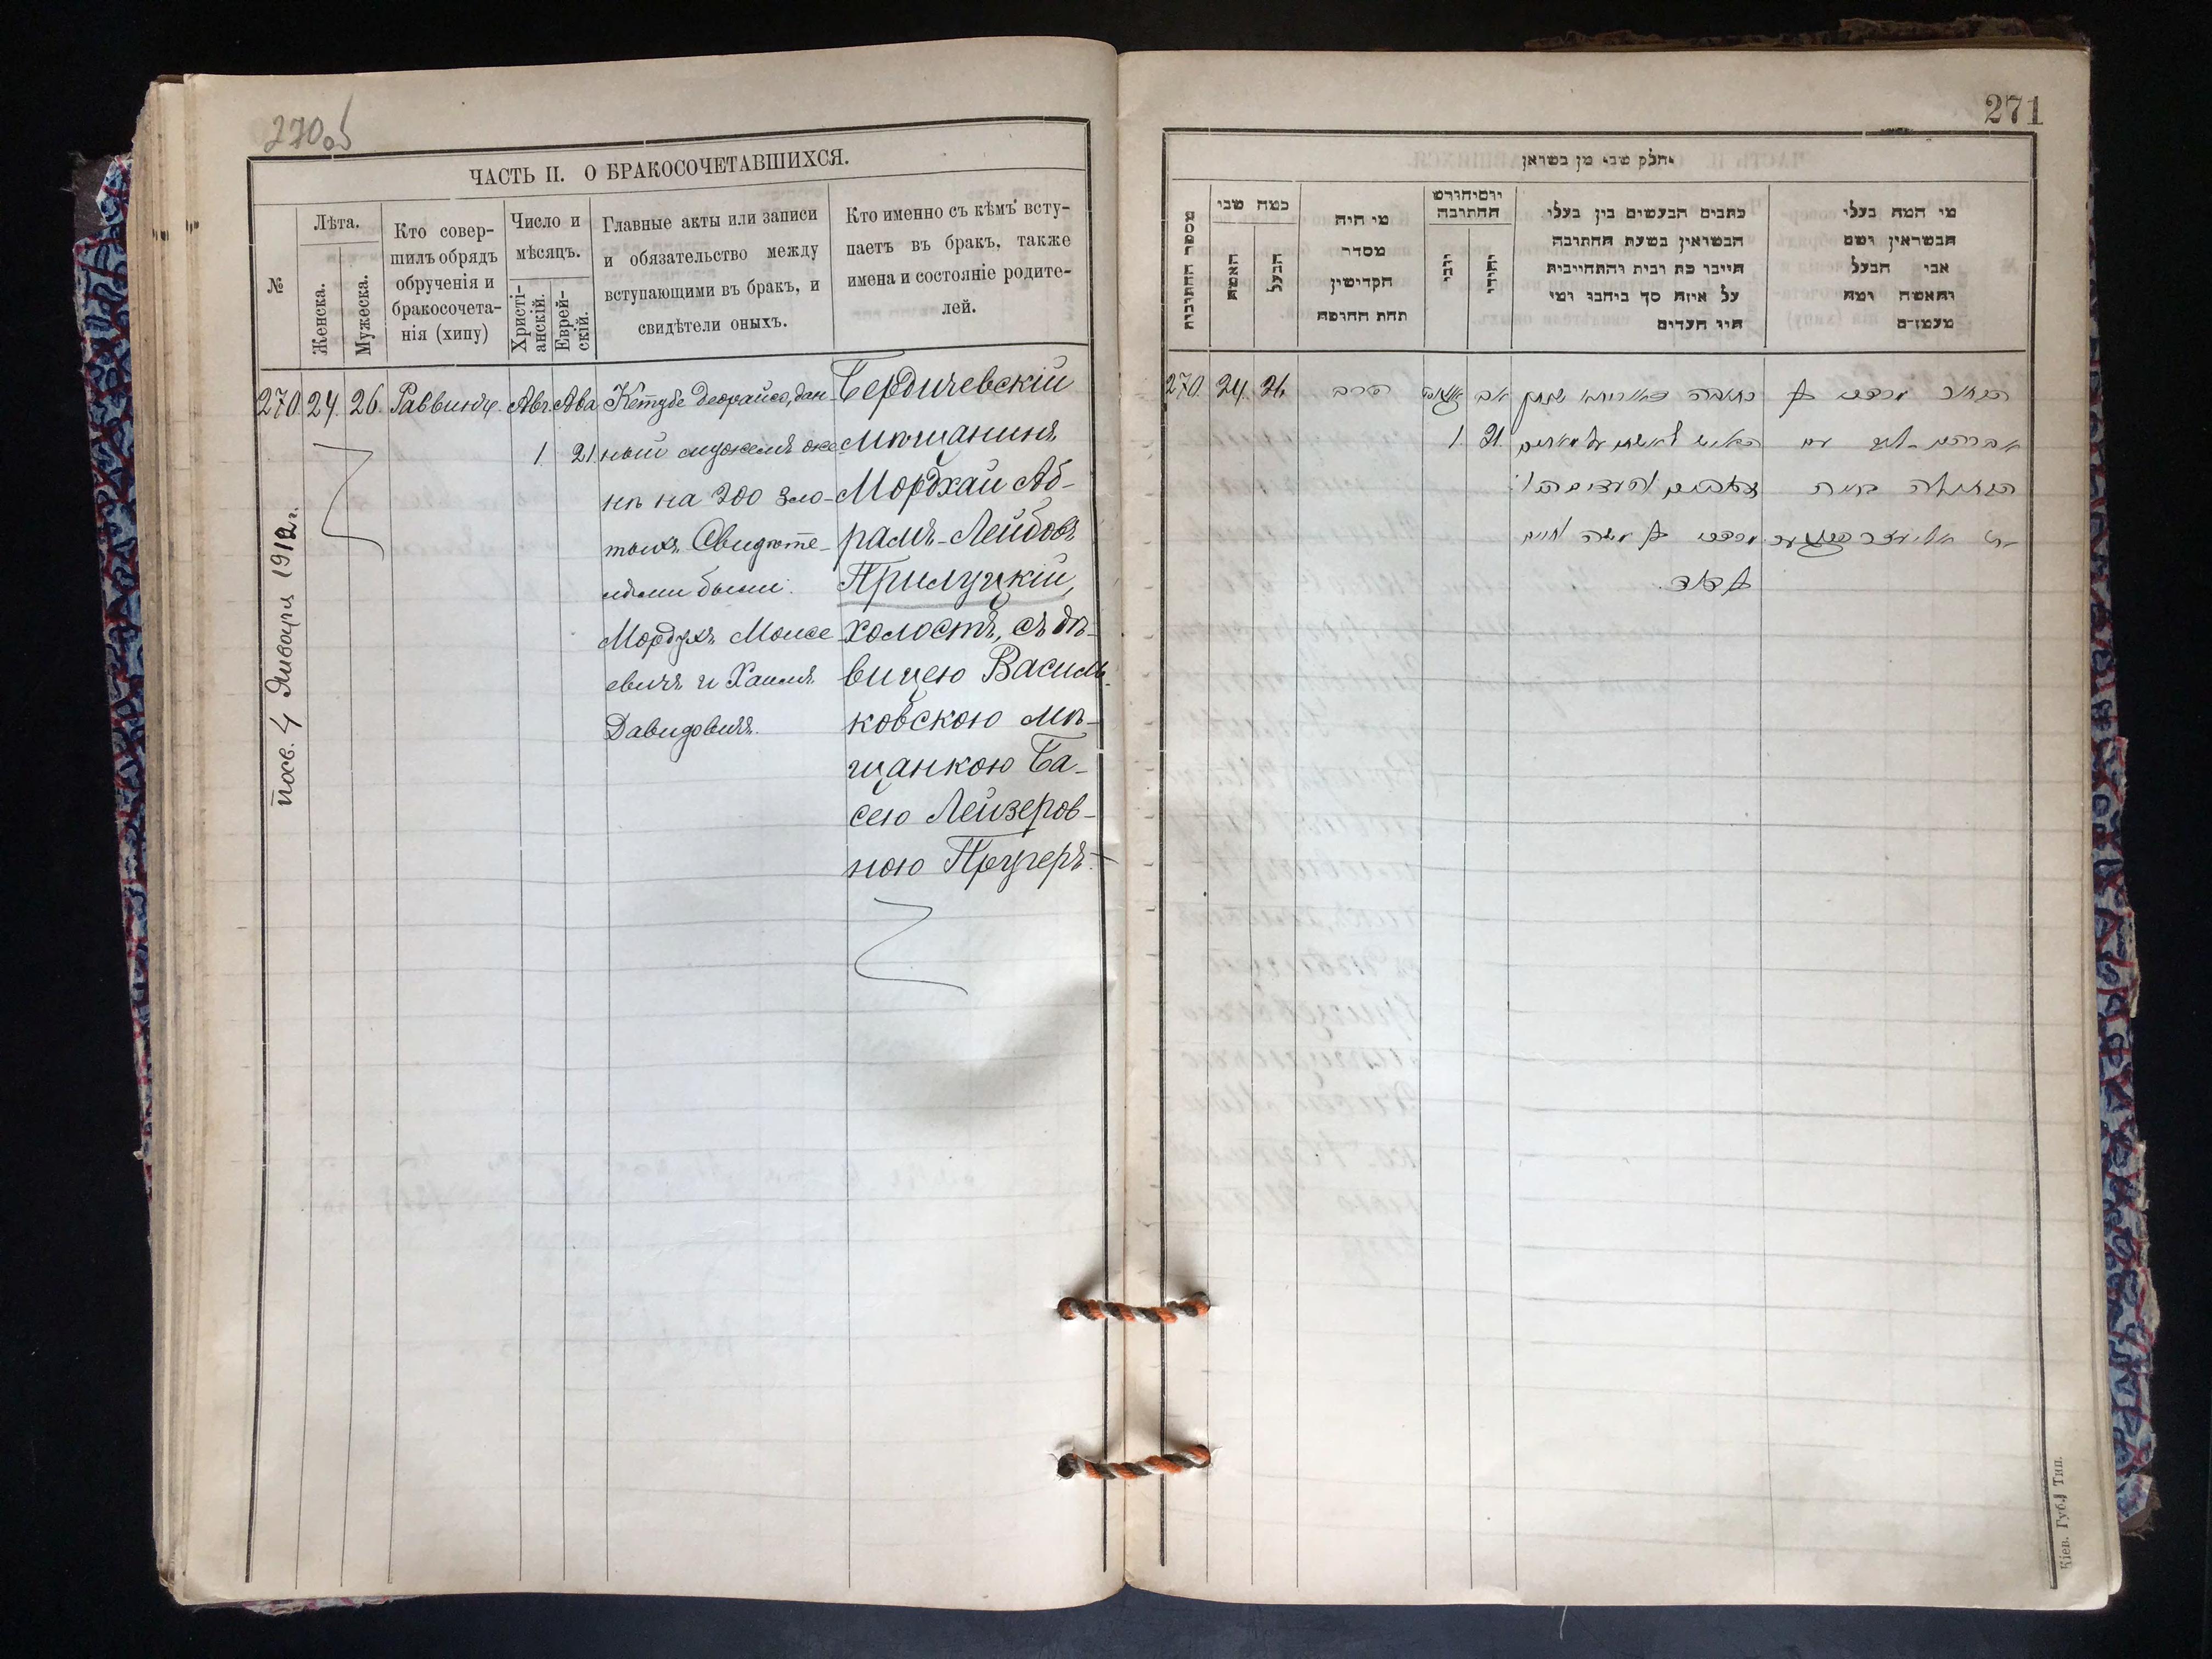 270 об
ЧАСТЬ II. О БРАКОСОЧЕТАВШИХСЯ.
№
Лѣта.
Женска.
Мужеска.
Кто совер-
шилъ обрядъ
обрученія и
бракосочета-
нія (хипу)
Число и
мѣсяцъ.
Христі-
анскій.
Еврей-
скій.
Главные акты или записи
и обязательство между
вступающими въ бракъ, и
свидѣтели оныхъ.
Кто именно съ кѣмъ всту-
паетъ въ бракъ, также
имена и состояніе родите-
лей.
270.
24.
26.
Раввинъ
Авг.
1.
Ава
21
Кетубе деорайсо, дан-
ный мужемъ же-
нѣ на 200 зло-
тыхъ Свидѣте-
лями были:
Мордухъ Моисе
евичъ и Хаимъ
Давидовичъ.
Бердичевскій
мѣщанинъ
Мордхай Аб-
рамъ-Лейбовъ
Прилуцкій,
холостъ, съ дѣ-
вицею Василь-
ковскою мѣ-
щанкою Ба-
сею Лейзеров-
ною
посв. 4 Января 1912 г.
271
חלק שני מן
מספר החתונות
כמה שני
האשה
הבעל
מי היה
מסדר
הקדישין
תחת החופה
יום וחודש
החתונה
יוני
יהודי
כתבים הנעשים בין בעלי
הנשואין בשעת החתונה
על איזה סך
היו העדים
מי המה בעלי
ושם
אבי הבעל
והאשה ומה
270.
24.
26
הרב
1.
אב
21.
הבחור מרדכי
אברהם ליב עם
הבתולה
מרדכי משה חיים
דוד.
Кіев. Губ. Тип.